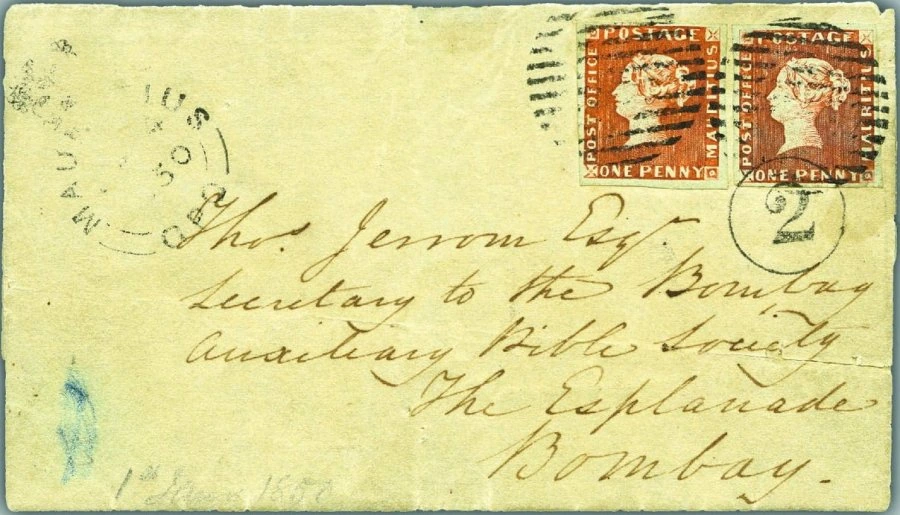 POSTAGE
POST OFFICE
MAURITIUS
ONE PENNY
POSTAGE
POST OFFICE
MAURITIUS
ONE PENNY
MAURITIUS
GPO
2
Thos. Jerrom Esqr.
Secretary to the Bombay
Auxiliary Bible Society
The Esplanade
Bombay.